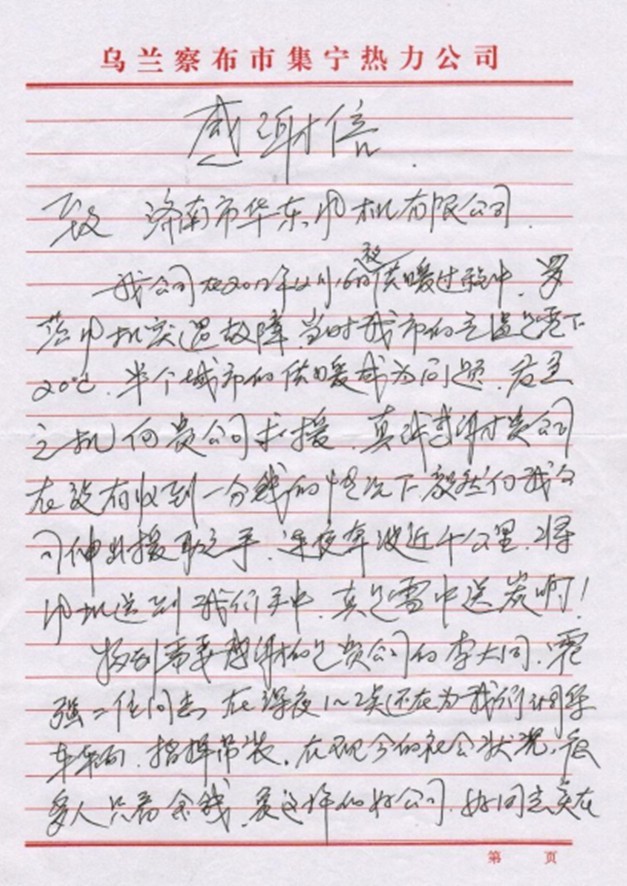 乌兰察布市集宁热力公司
感谢信
致 济南市华东风机有限公司
我公司在2012年12月16夜供暖过程中,罗
茨风机突遇故障,当时我市的气温是零下
20℃,半个城市的供暖成为问题,
之机向贵公司求援,真诚感谢贵公司
在没有收到一分钱的情况下毅然向我公
司伸出援助之手,连夜奔波近千公里,将
风机送到我们手中,真是雪中送炭啊!
特别需要感谢的是贵公司的李大同、
强二位同志,在深夜1~2点还在为我们
车辆,指挥吊装。在现今的社会状况,很
多人只看金钱,像这样的好公司,好同志实在
第 页